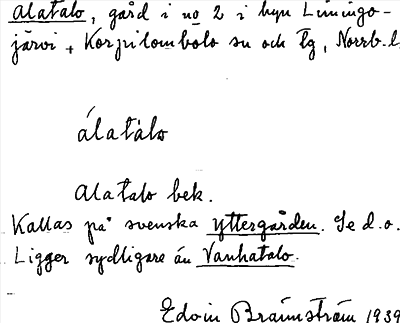 Alatalo, gård i no 2 i byn Liningo-
järvi, Korpilombolo sn och tg, Norrb. l.
álatàlo
Alatalo bek.
Kallas på svenska yttergården. Se d.o.
Ligger sydligare än Vanhatalo.
Edvin Brännström 1939